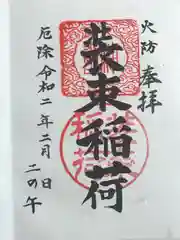 火防 奉拝
装束稲荷
厄除 令和二年二月 日
二の午